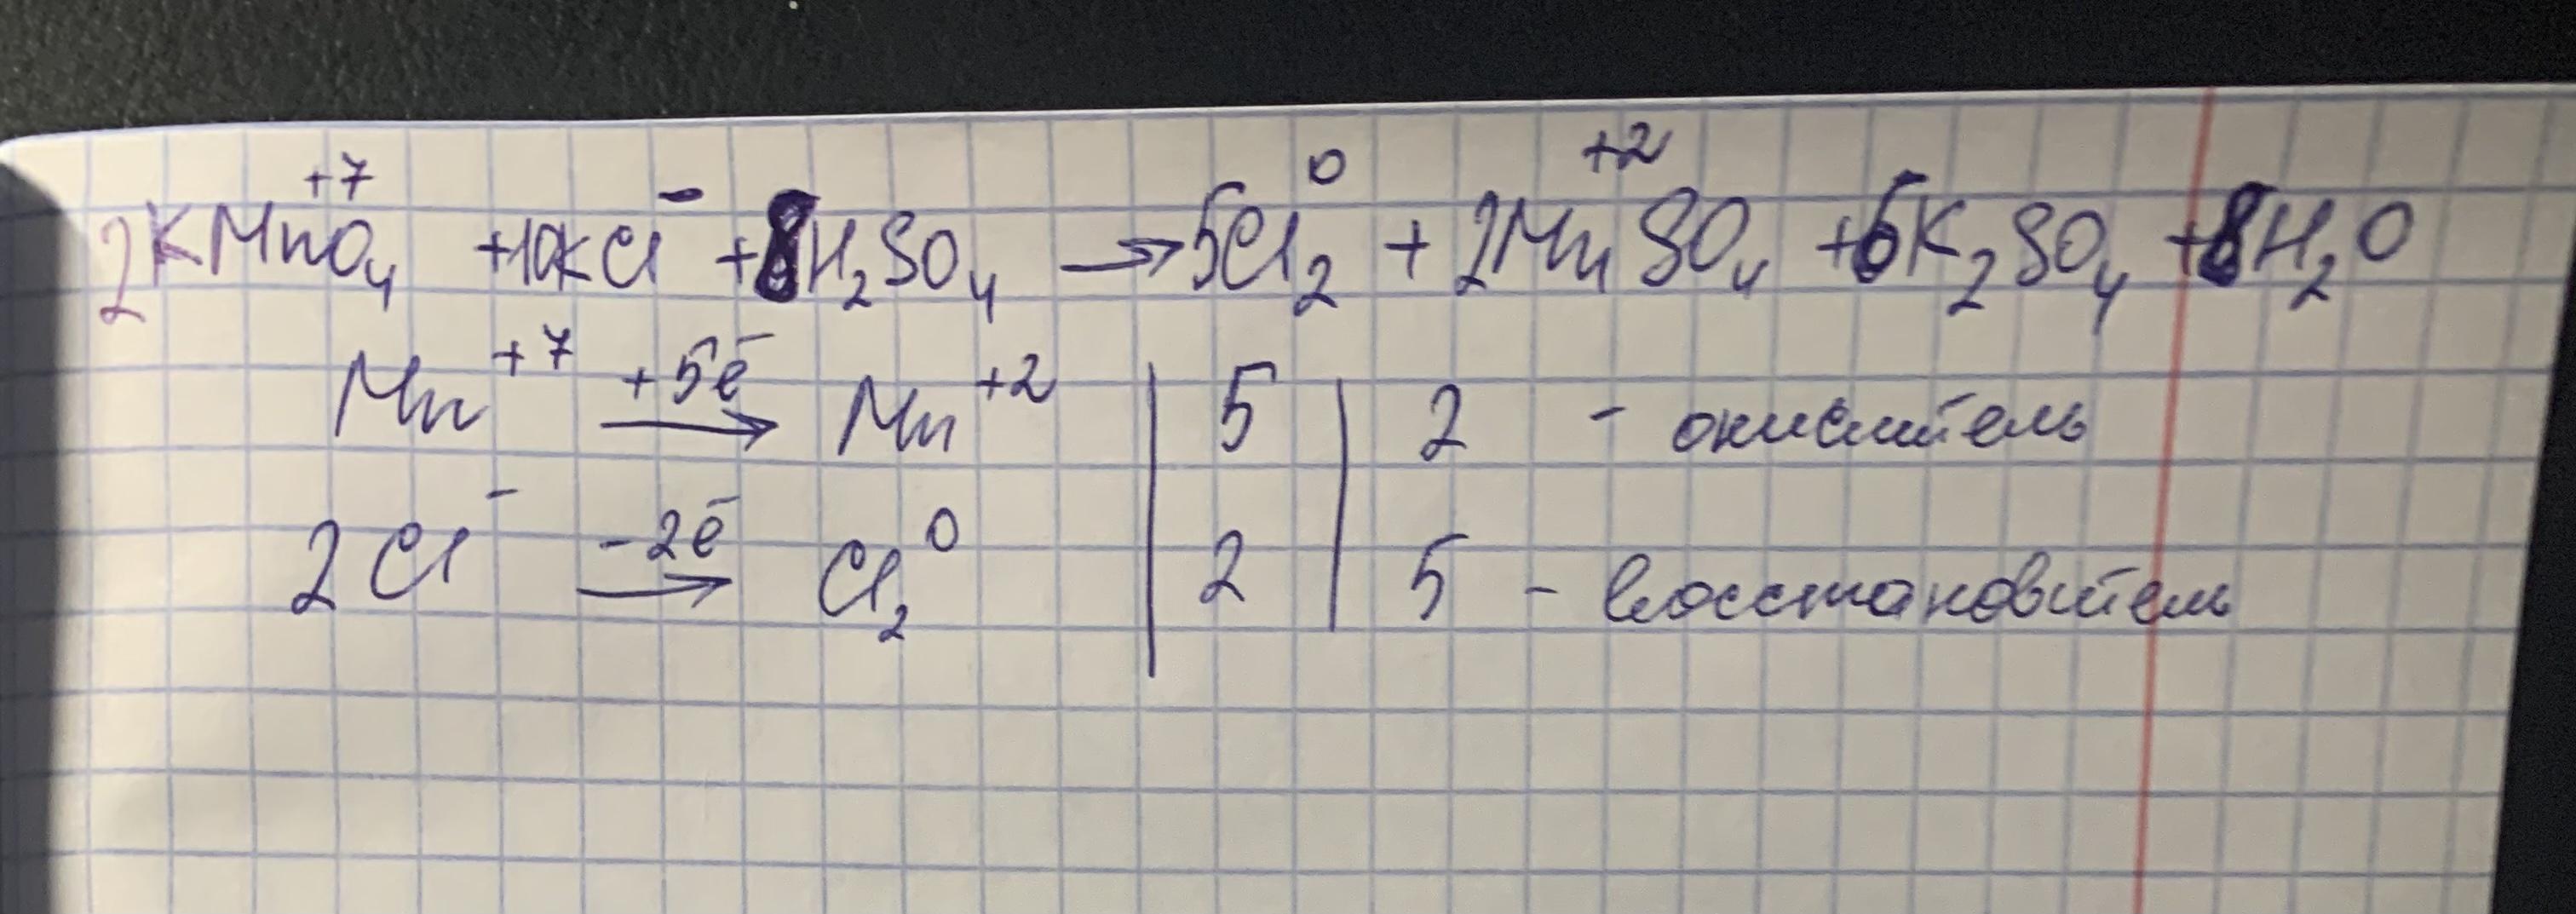 2KMn⁺⁷O₄ + 10KCl⁻ + 8H₂SO₄ → 5Cl₂⁰ + 2Mn⁺²SO₄ + 6K₂SO₄ + 8H₂O
Mn⁺⁷ +5ē → Mn⁺² | 5 | 2 - окислитель
2Cl⁻ -2ē → Cl₂⁰ | 2 | 5 - восстановитель